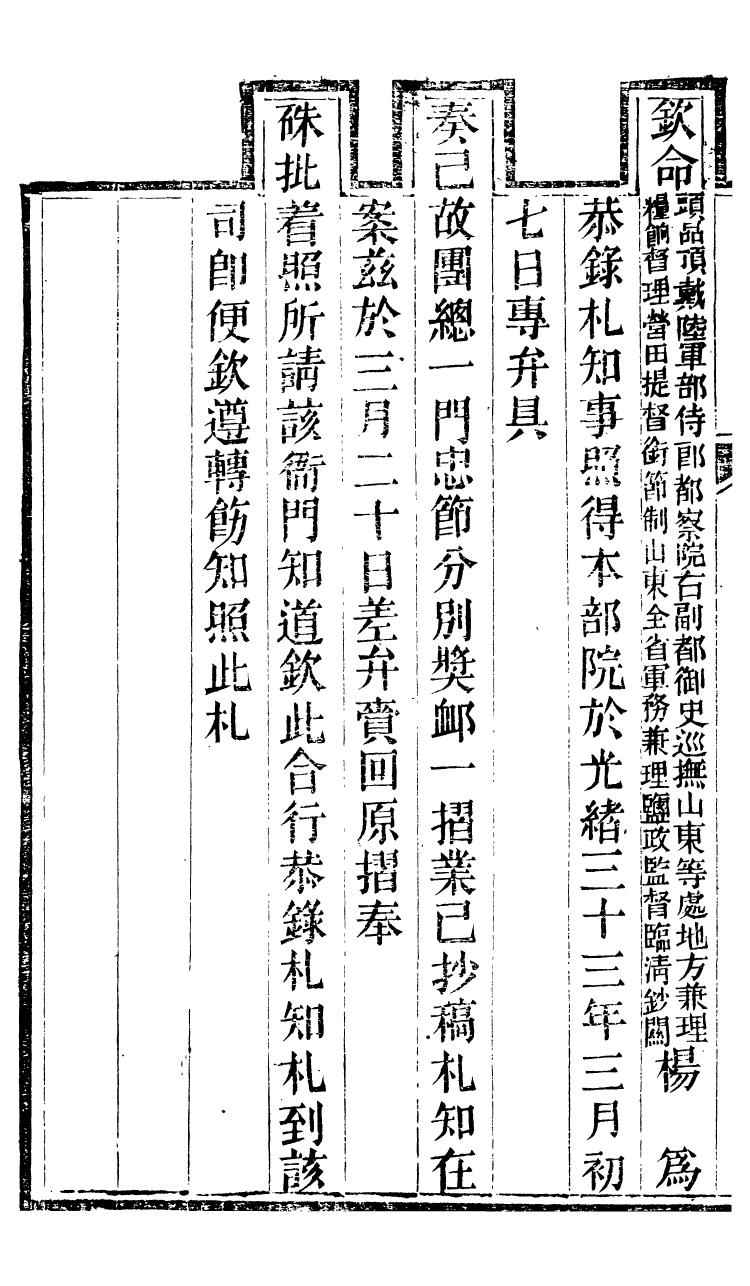 欽命頭品頂戴陸軍部侍郎都察院右副都御史巡撫山東等處地方兼理糧餉督理營田提督銜節制山東全省軍務兼理鹽政監督臨淸鈔關楊　爲
恭錄札知事照得本部院於光緖三十三年三月初
七日專弁具
奏已故團總一門忠節分別獎䘏一摺業已抄稿札知在
案茲於三月二十日差弁賫回原摺奉
硃批着照所請該衙門知道欽此合行恭錄札知札到該
司卽便欽遵轉飭知照此札